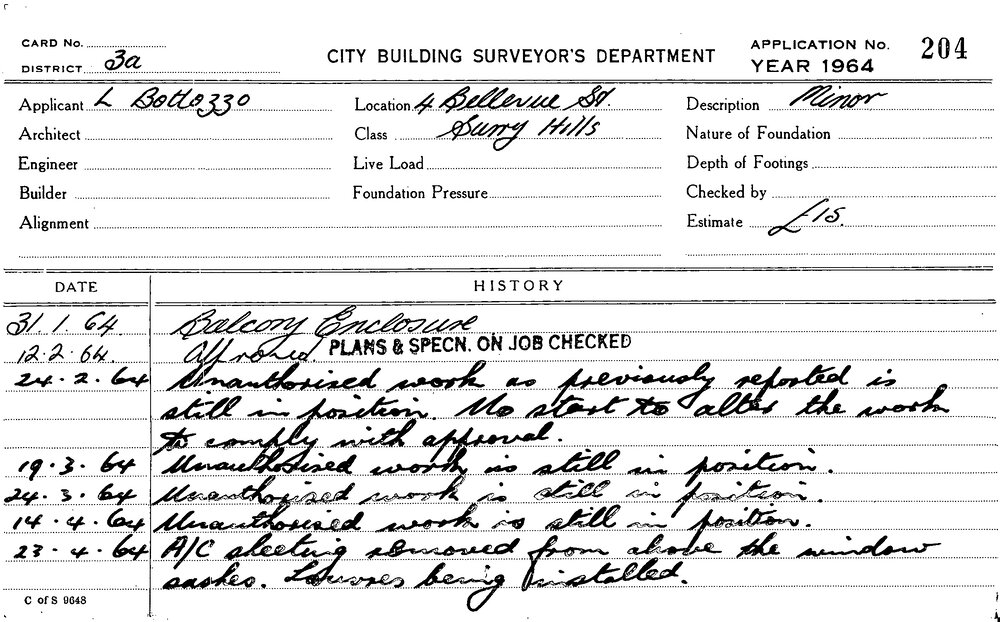 CARD No.
DISTRICT 3a
CITY BUILDING SURVEYOR'S DEPARTMENT
APPLICATION No. 204
YEAR 1964
Applicant L Bottozzo
Location 4 Bellevue St.
Description Minor
Architect
Class Surry Hills
Nature of Foundation
Engineer
Live Load
Depth of Footings
Builder
Foundation Pressure
Checked by
Alignment
Estimate £15.
DATE HISTORY
31.1.64 Balcony Enclosure
12.2.64. Approved. PLANS & SPECN. ON JOB CHECKED
24.2.64 Unauthorised work as previously reported is
still in position. No start to alter the work
to comply with approval.
19.3.64 Unauthorised work is still in position.
24.3.64 Unauthorised work is still in position.
14.4.64 Unauthorised work is still in position.
23.4.64 A/C sheeting removed from above the window
sashes. Louvres being installed.
C of S 9648